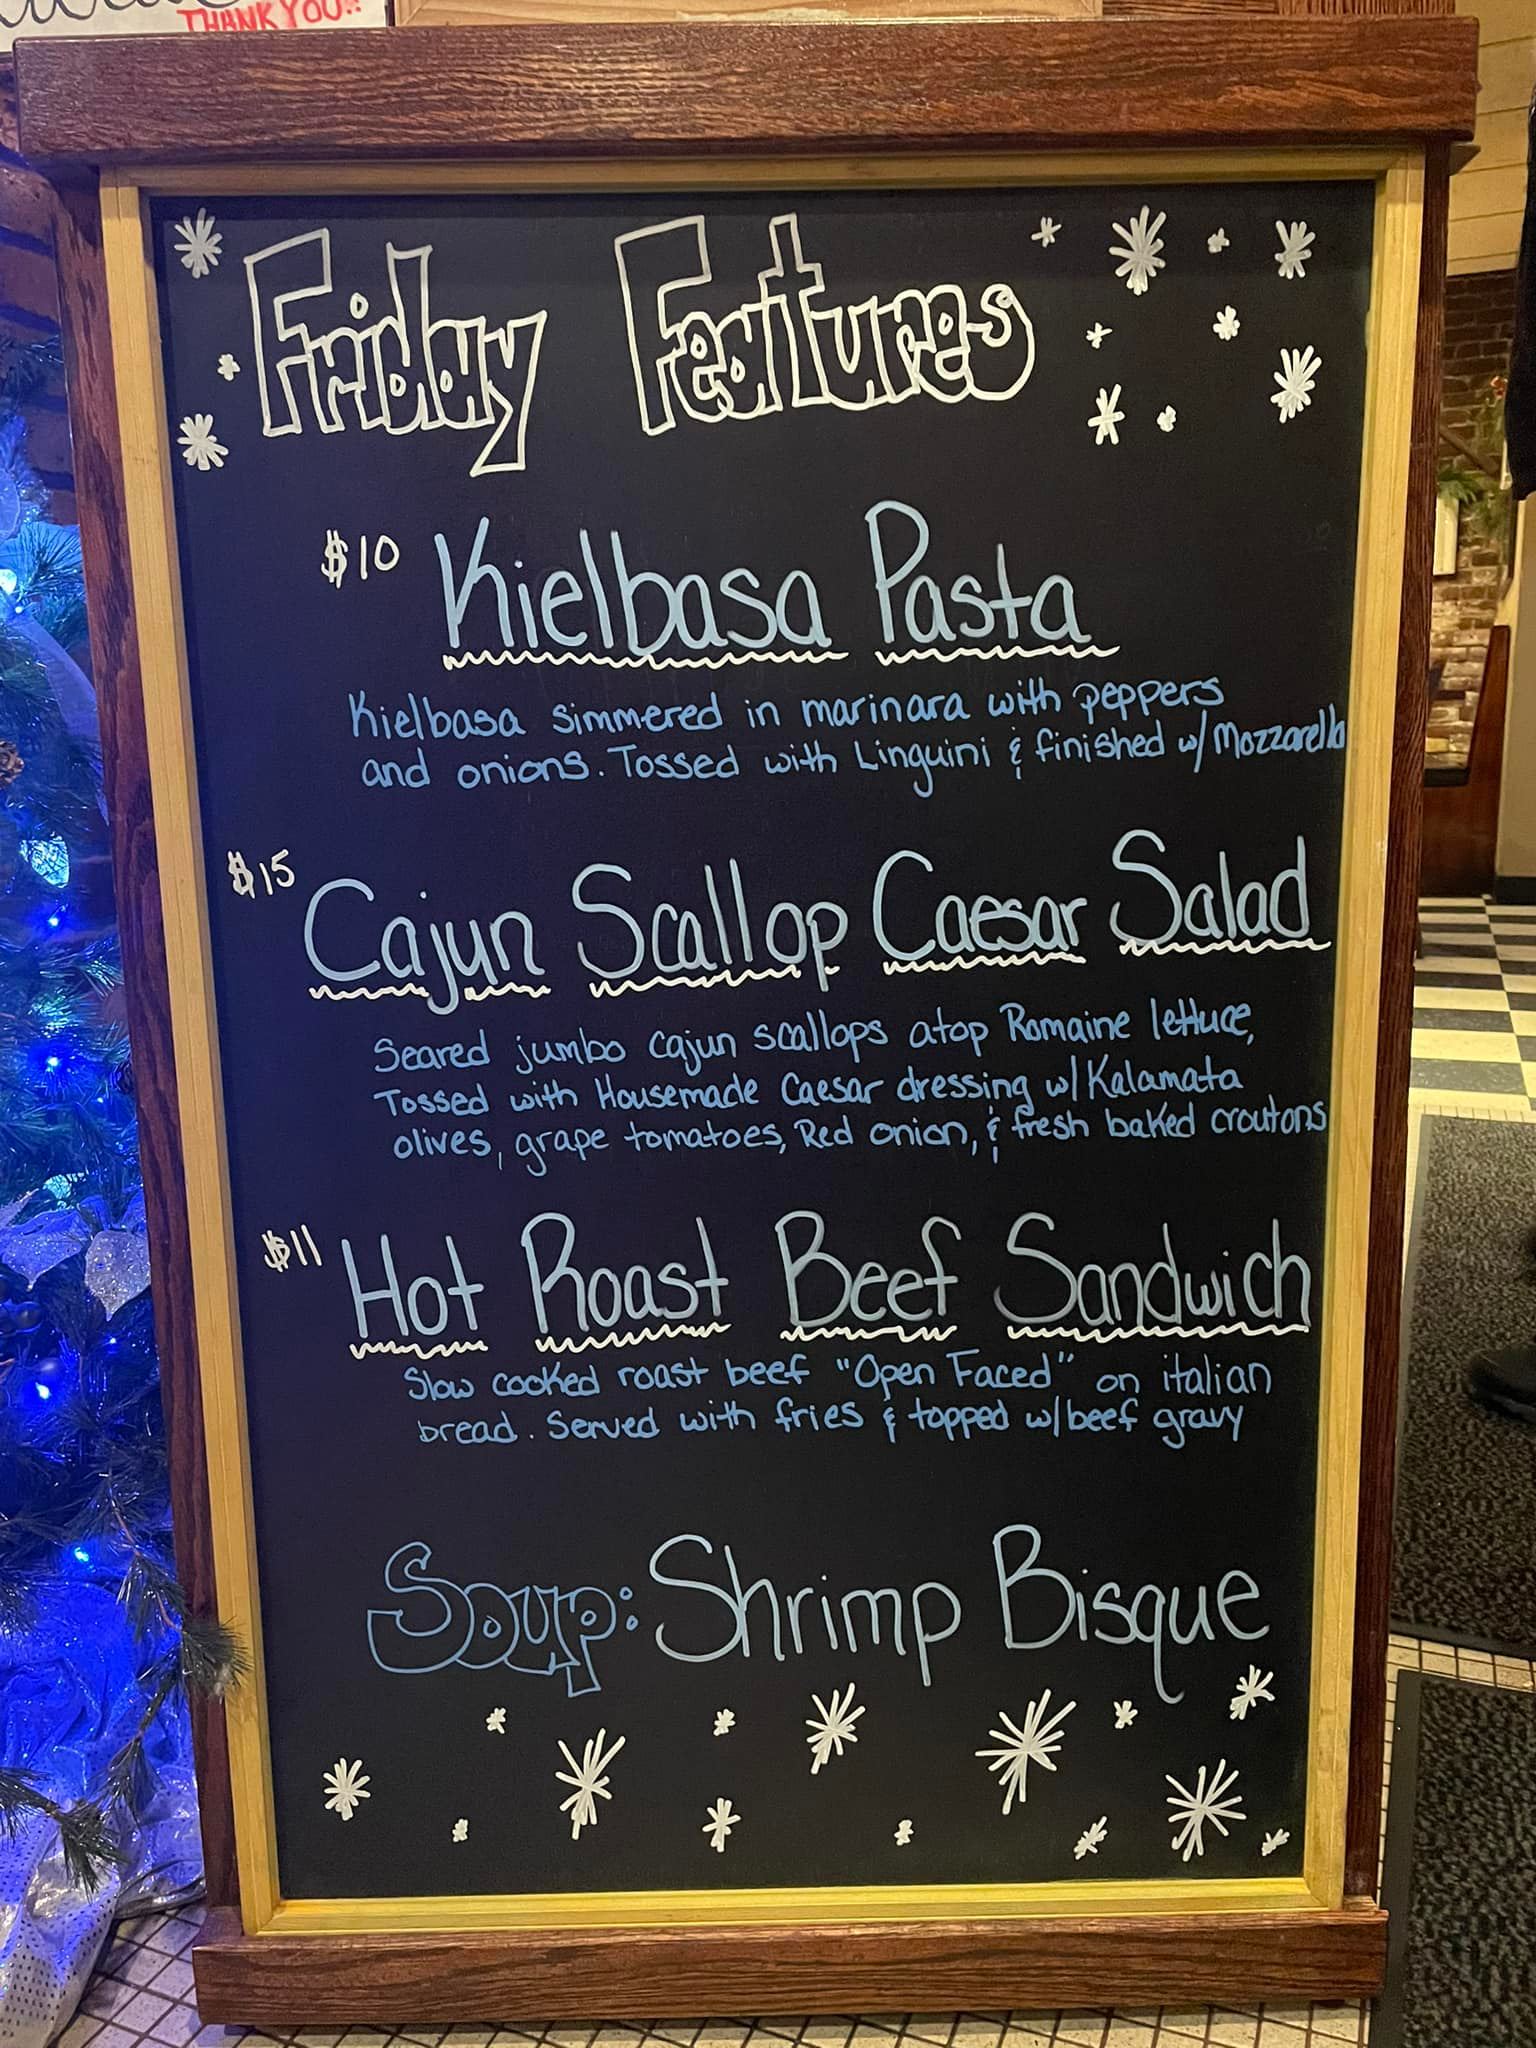 THANK YOU!!
Friday Features
$10 Kielbasa Pasta
Kielbasa simmered in marinara with peppers
and onions. Tossed with Linguini & finished w/ Mozzarella
$15 Cajun Scallop Caesar Salad
Seared jumbo cajun scallops atop Romaine lettuce,
Tossed with Housemade Caesar dressing w/ Kalamata
olives, grape tomatoes, Red onion, & fresh baked croutons
$11 Hot Roast Beef Sandwich
Slow cooked roast beef "Open Faced" on italian
bread. Served with fries & topped w/ beef gravy
Soup: Shrimp Bisque